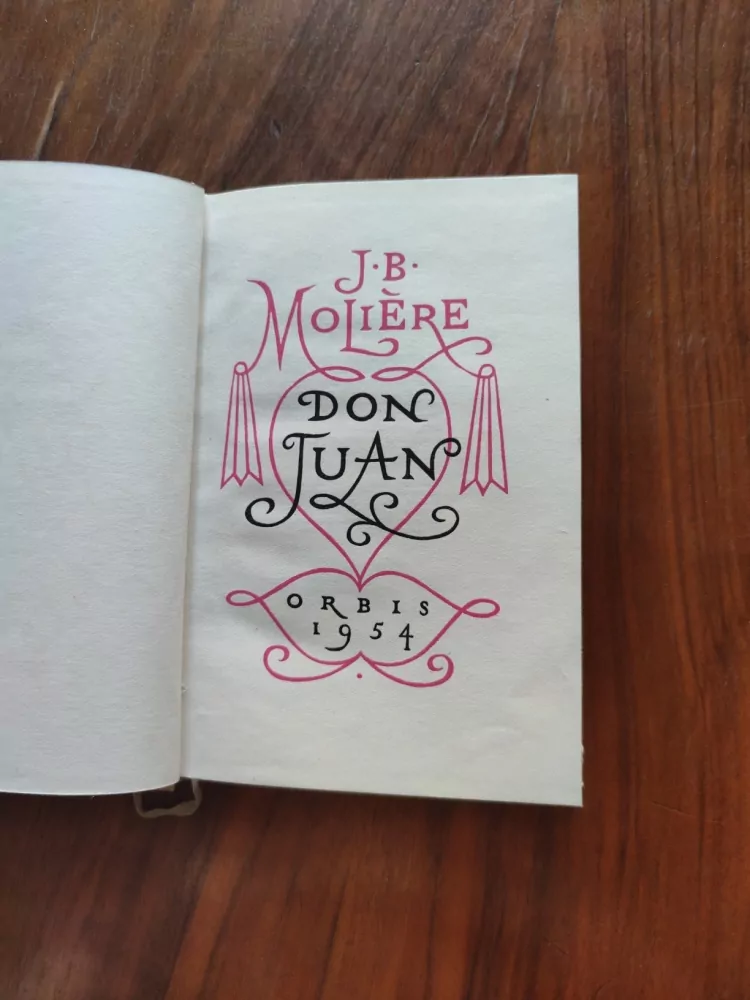 J·B·
MOLIÈRE
DON
JUAN
ORBIS
1954